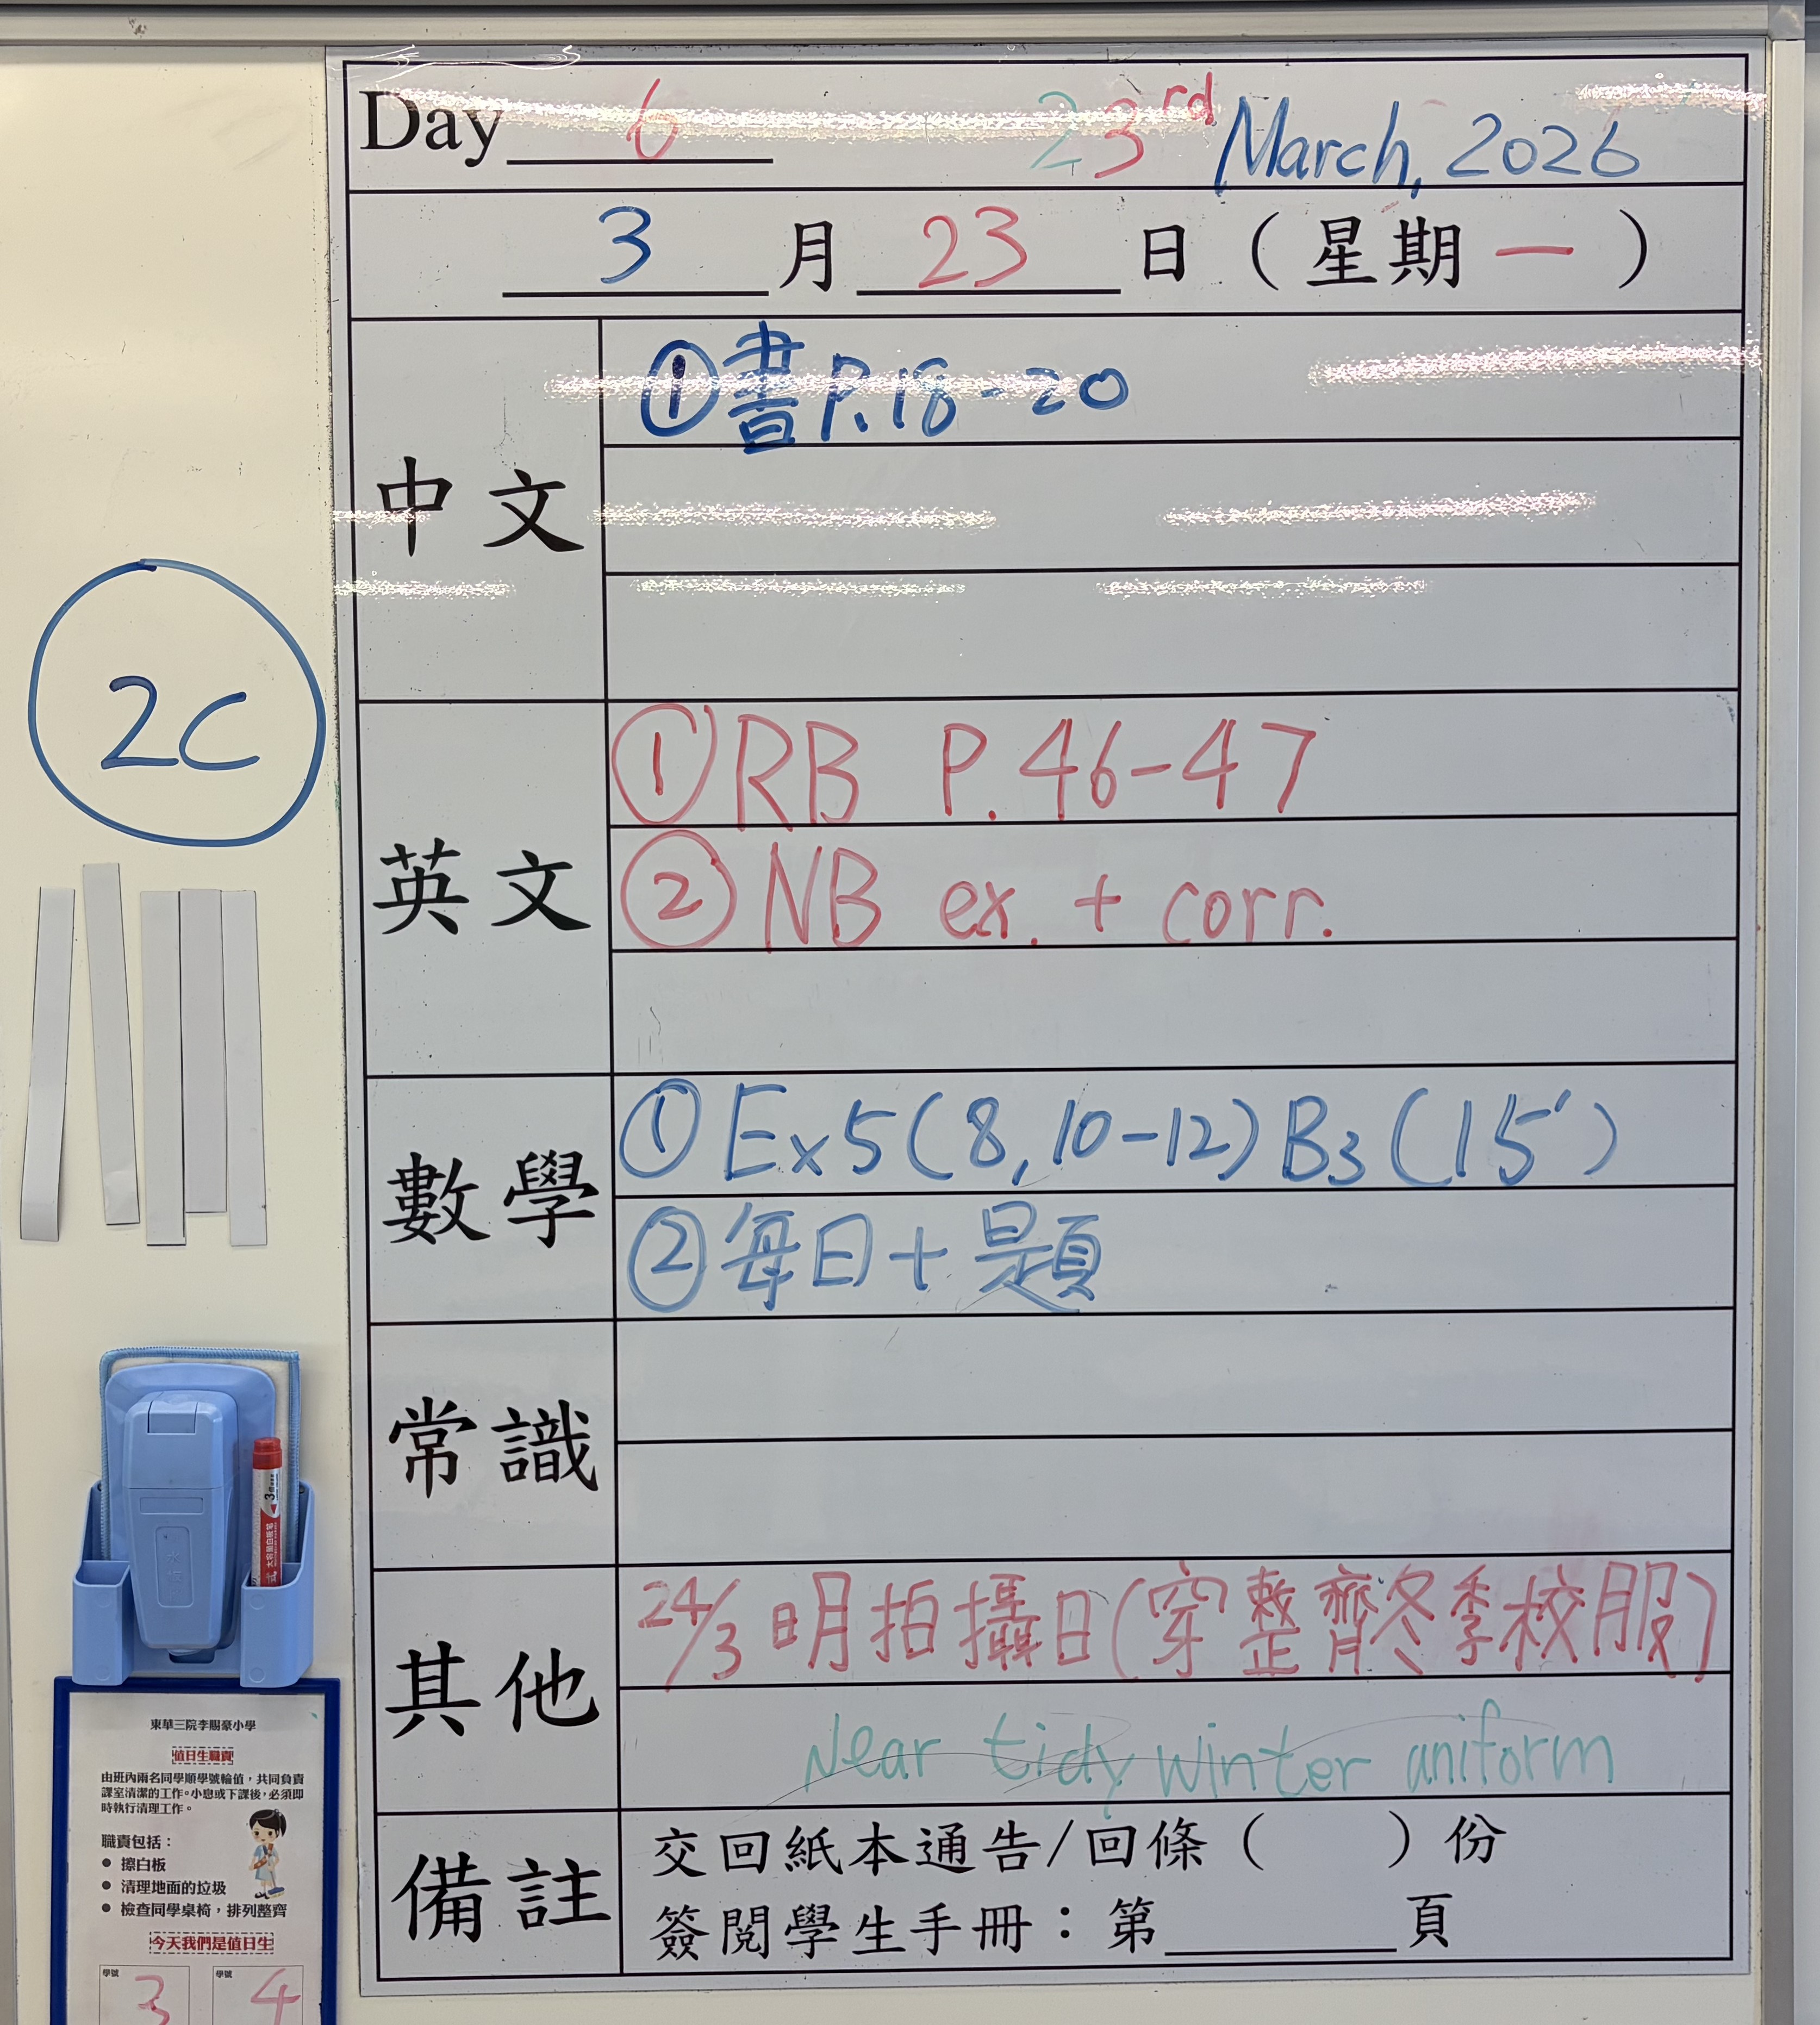 Day 6 23rd March, 2026
3 月 23 日 ( 星期 一 )
中文
①書P.18-20
2C
英文
①RB P.46-47
②NB ex. + corr.
數學
①Ex5(8,10-12)B3(15')
②每日十題
常識
其他
24/3 明拍攝日(穿整齊冬季校服)
Wear tidy winter uniform
備註
交回紙本通告/回條( )份
簽閱學生手冊:第 頁
東華三院李賜豪小學
值日生職責
由班內兩名同學順學號輪值,共同負責
課室清潔的工作。小息或下課後,必須即
時執行清理工作。
職責包括:
● 擦白板
● 清理地面的垃圾
● 檢查同學桌椅,排列整齊
今天我們是值日生
學號 3 學號 4